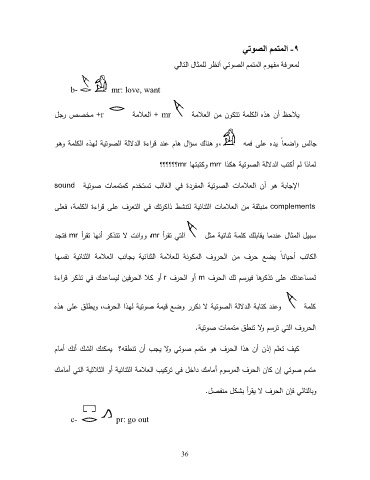 ٩- المتمم الصوتي
لمعرفة مفهوم المتمم الصوتي أنظر للمثال التالي
b- mr: love, want
يلاحظ أن هذه الكلمة تتكون من العلامة mr + العلامة r+ مخصص رجل
جالس واضعاً يده على فمه ،و هناك سؤال هام عند قراءة الدلالة الصوتية لهذه الكلمة وهو
لماذا لم أكتب الدلالة الصوتية هكذا mrr وكتبتها mr؟؟؟؟؟؟
الإجابة هو أن العلامات الصوتية المفردة في الغالب تستخدم كمتممات صوتية sound
complements منبثقة من العلامات الثنائية لتنشط ذاكرتك في التعرف على قراءة الكلمة، فعلى
سبيل المثال عندما يقابلك كلمة ثنائية مثل التي تقرأ mr، وانت لا تتذكر أنها تقرأ mr فتجد
الكاتب أحياناً يضع حرف من الحروف المكونة للعلامة الثنائية بجانب العلامة الثنائية نفسها
لمساعدتك على تذكرها فيرسم لك الحرف m أو الحرف r أو كلا الحرفين ليساعدك في تذكر قراءة
كلمة وعند كتابة الدلالة الصوتية لا نكرر وضع قيمة صوتية لهذا الحرف، ويطلق على هذه
الحروف التي ترسم ولا تنطق متممات صوتية.
كيف تعلم إذن أن هذا الحرف هو متمم صوتي ولا يجب أن تنطقه؟ يمكنك الشك أنك أمام
متمم صوتي إن كان الحرف المرسوم أمامك داخل في تركيب العلامة الثنائية أو الثلاثية التي أمامك
وبالتالي فإن الحرف لا يقرأ بشكل منفصل.
c- pr: go out
36